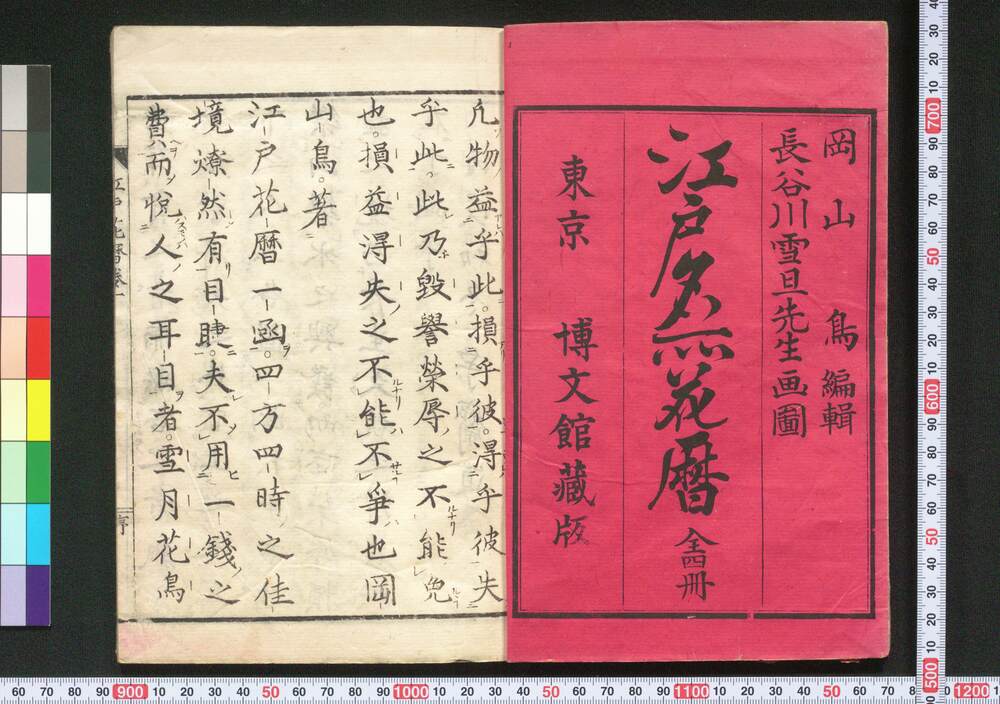 岡山鳥編輯
長谷川雪旦先生画圖
江戸名所花暦 全四冊
東京 博文館藏版
凢物益乎此損乎彼。得乎彼失
乎此。此乃毀譽榮辱之不能免
也。損益得失之不能不爭也岡
山鳥。著
江戸花暦一函。四方四時之佳
境燎然有目睫。夫不用一錢之
費。而悅人之耳目者。雪月花鳥
江戸花暦卷一
序